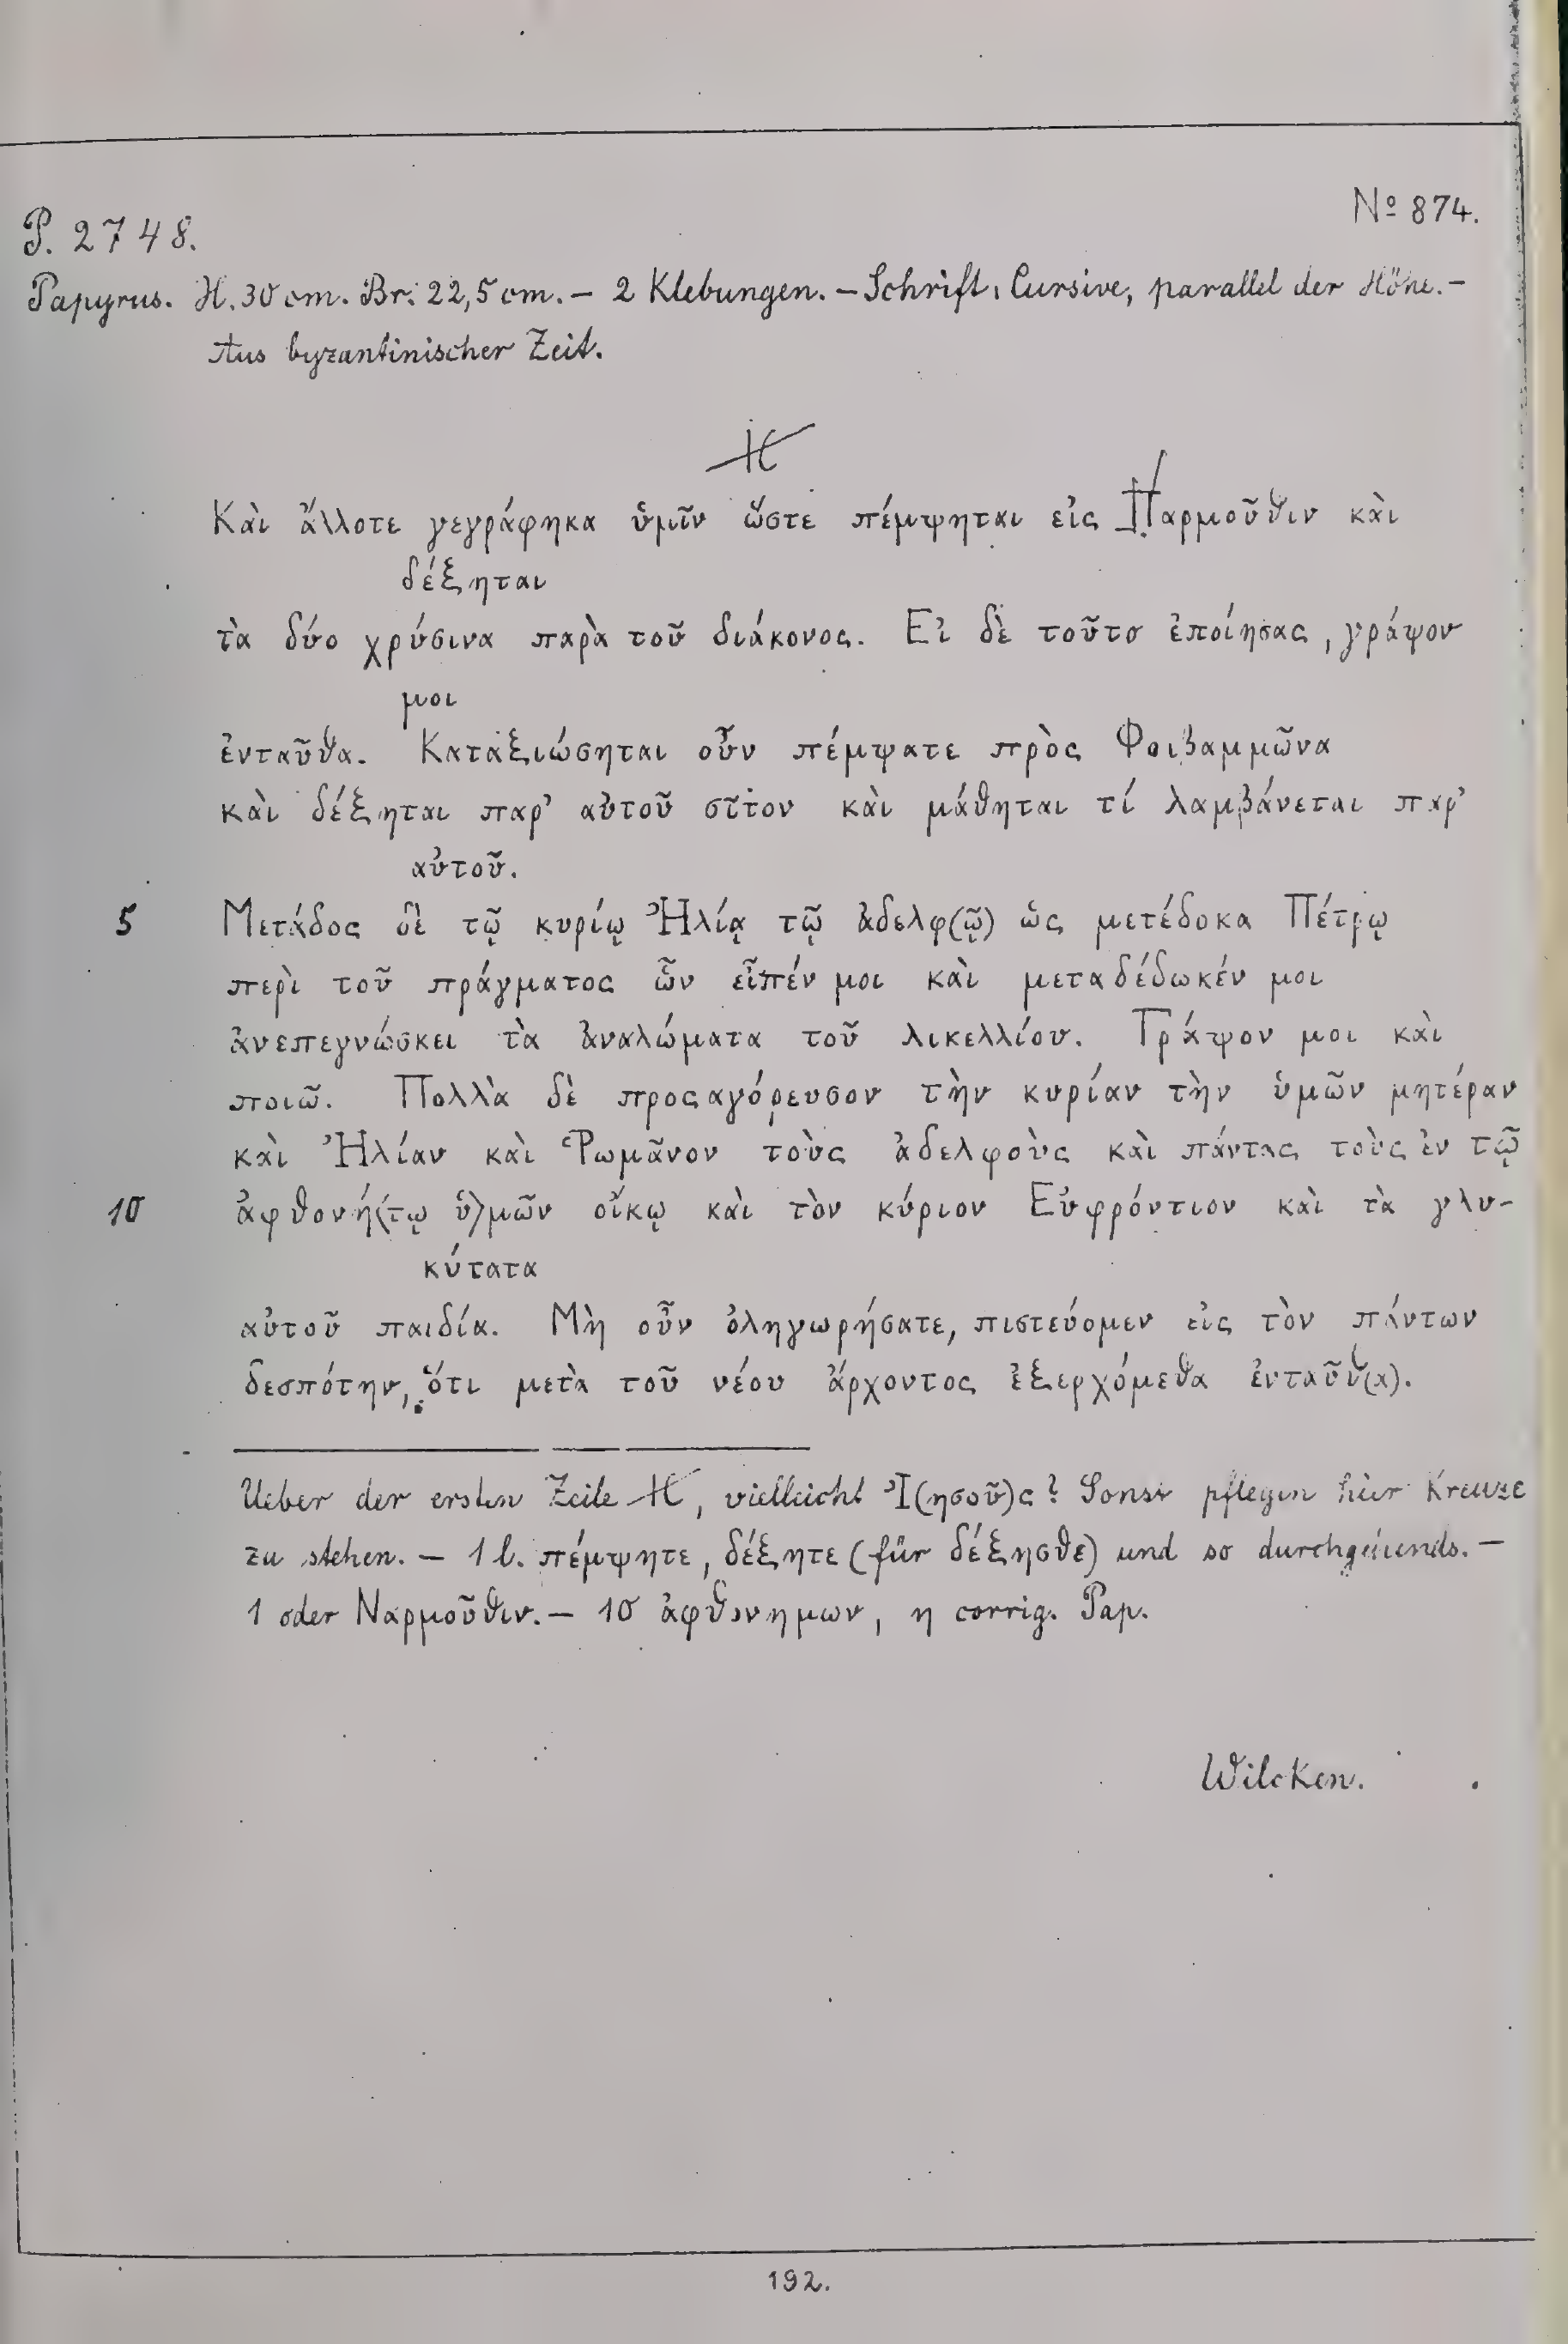 P. 2748.
No 874.
Papyrus. H. 30 cm. Br: 22,5 cm. — 2 Klebungen. — Schrift: Cursive, parallel der Höhe. —
Aus byzantinischer Zeit.
Καὶ ἄλλοτε γεγράφηκα ὑμῖν ὥστε πέμψηται εἰς Παρμοῦθιν καὶ
δέξηται
τὰ δύο χρύσινα παρὰ τοῦ διάκονος. Εἰ δὲ τοῦτο ἐποίησας, γράψον
μοι
ἐνταῦθα. Καταξιώσηται οὖν πέμψατε πρὸς Φοιβαμμῶνα
καὶ δέξηται παρ' αὐτοῦ σῖτον καὶ μάθηται τί λαμβάνεται παρ'
αὐτοῦ.
5 Μετάδος δὲ τῷ κυρίῳ Ἠλίᾳ τῷ ἀδελφ(ῷ) ὡς μετέδοκα Πέτρῳ
περὶ τοῦ πράγματος ὧν εἶπέν μοι καὶ μεταδέδωκέν μοι
ἀνεπεγνώσκει τὰ ἀναλώματα τοῦ λικελλίου. Γράψον μοι καὶ
ποιῶ. Πολλὰ δὲ προςαγόρευσον τὴν κυρίαν τὴν ὑμῶν μητέραν
καὶ Ἠλίαν καὶ Ῥωμᾶνον τοὺς ἀδελφοὺς καὶ πάντας τοὺς ἐν τῷ
10 ἀφθονή⟨τῳ ὑ⟩μῶν οἴκῳ καὶ τὸν κύριον Εὐφρόντιον καὶ τὰ γλυ-
κύτατα
αὐτοῦ παιδία. Μὴ οὖν ὀληγωρήσατε, πιστεύομεν εἰς τὸν πάντων
δεσπότην, ὅτι μετὰ τοῦ νέου ἄρχοντος ἐξερχόμεθα ἐνταῦθ(α).
Ueber der ersten Zeile, vielleicht Ἰ(ησοῦ)ς? Sonst pflegen hier Kreuze
zu stehen. — 1 l. πέμψητε, δέξητε (für δέξησθε) und so durchgehends. —
1 oder Ναρμοῦθιν. — 10 ἀφθονημων, η corrig. Pap.
Wilcken.
192.